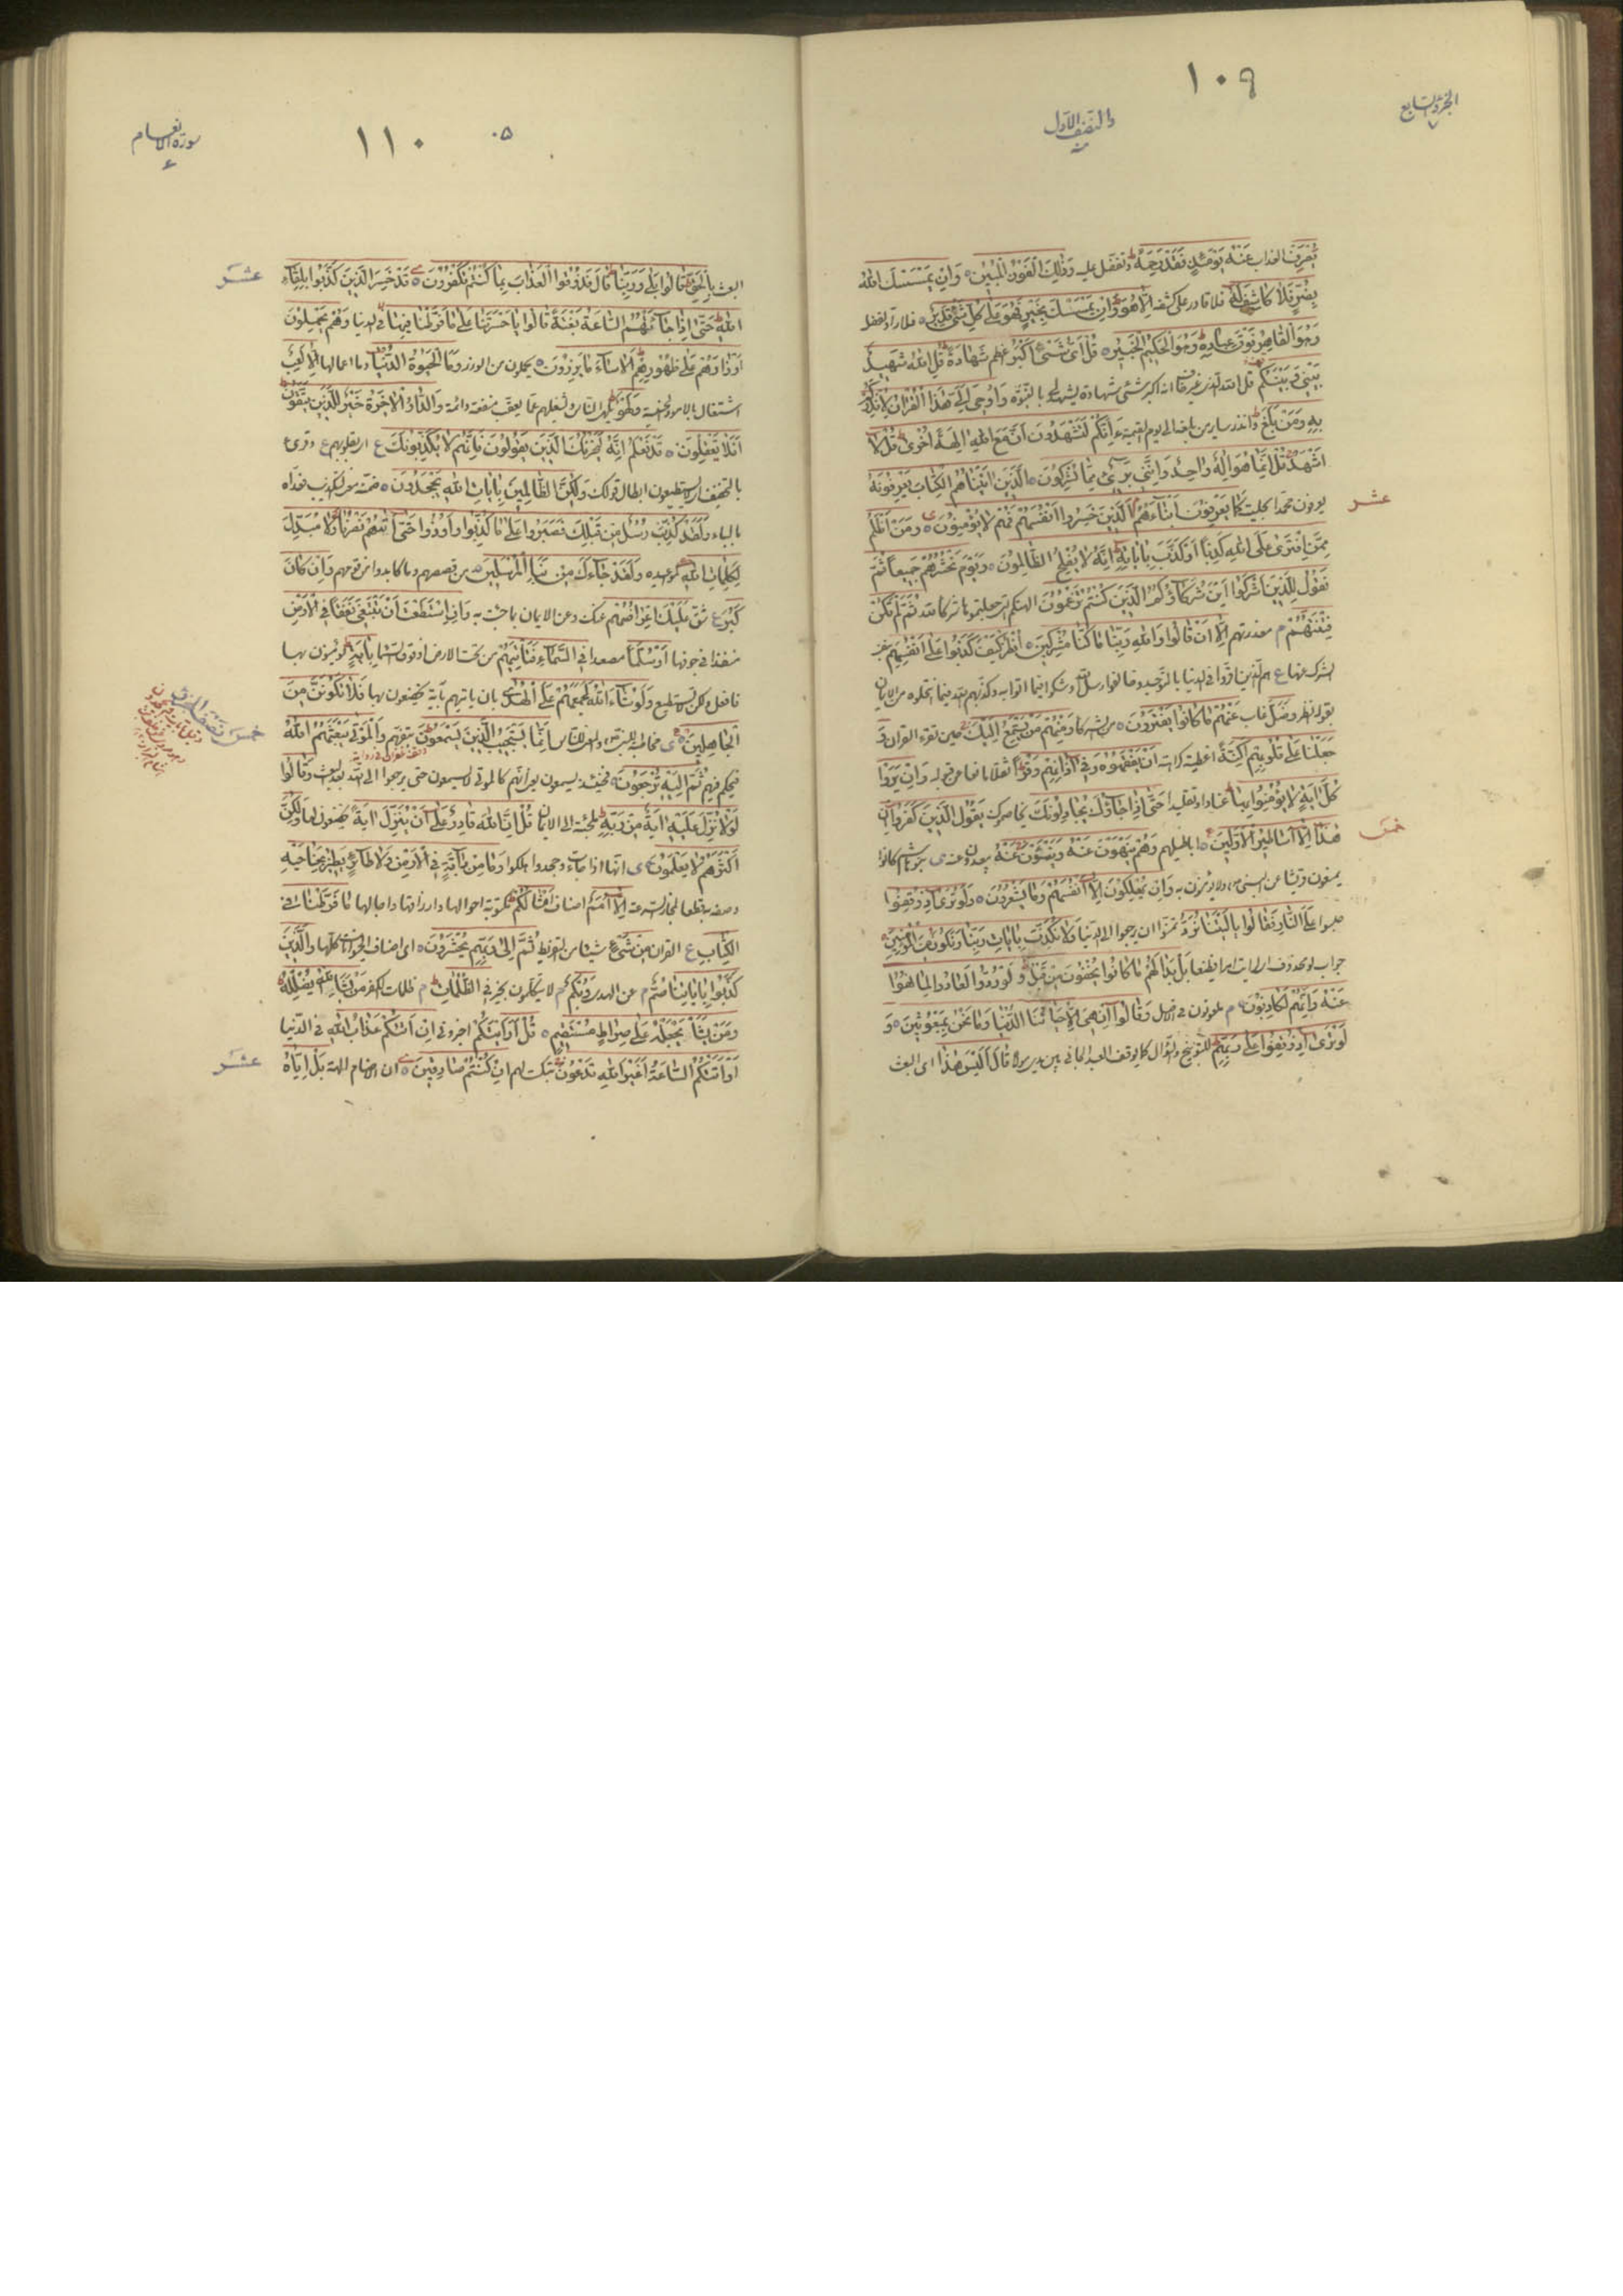 الجزء السابع
والنصف الأول
١٠٩
يُصْرَفْ العذاب عَنْهُ يَوْمَئِذٍ فَقَدْ رَحِمَهُ وتفضل عليه وَذٰلِكَ الْفَوْزُ الْمُبِينُ وَاِنْ يَمْسَسْكَ اللهُ
بِضُرٍّ فَلَا كَاشِفَ لَهُ فلا قادر على كشفه اِلَّا هُوَ وَاِنْ يَمْسَسْكَ بِخَيْرٍ فَهُوَ عَلٰى كُلِّ شَيْءٍ قَدِيرٌ فلا راد لفضله
وَهُوَ الْقَاهِرُ فَوْقَ عِبَادِهِ وَهُوَ الْحَكِيمُ الْخَبِيرُ قُلْ اَيُّ شَيْءٍ اَكْبَرُ اعظم شَهَادَةً قُلِ اللهُ شَهِيدٌ
بَيْنِي وَبَيْنَكُمْ قل الله اكبر شيء شهادة يشهد لي بالنبوة وَاُوحِيَ اِلَيَّ هٰذَا الْقُرْاٰنُ لِاُنْذِرَكُمْ
بِهِ وَمَنْ بَلَغَ وانذر ساير من بلغه الى يوم القيمة اَئِنَّكُمْ لَتَشْهَدُونَ اَنَّ مَعَ اللهِ اٰلِهَةً اُخْرٰى قُلْ لَا
اَشْهَدُ قُلْ اِنَّمَا هُوَ اِلٰهٌ وَاحِدٌ وَاِنَّنِي بَرِيءٌ مِمَّا تُشْرِكُونَ اَلَّذِينَ اٰتَيْنَاهُمُ الْكِتَابَ يَعْرِفُونَهُ
يعرفون محمدا بحليته كَمَا يَعْرِفُونَ اَبْنَاءَهُمُ الَّذِينَ خَسِرُوا اَنْفُسَهُمْ فَهُمْ لَا يُؤْمِنُونَ وَمَنْ اَظْلَمُ
عشر
مِمَّنِ افْتَرٰى عَلَى اللهِ كَذِبًا اَوْ كَذَّبَ بِاٰيَاتِهِ اِنَّهُ لَا يُفْلِحُ الظَّالِمُونَ وَيَوْمَ نَحْشُرُهُمْ جَمِيعًا ثُمَّ
نَقُولُ لِلَّذِينَ اَشْرَكُوا اَيْنَ شُرَكَاؤُكُمُ الَّذِينَ كُنْتُمْ تَزْعُمُونَ الهتكم التي جعلتموها شركاء لله ثُمَّ لَمْ تَكُنْ
فِتْنَتُهُمْ م معذرتهم اِلَّا اَنْ قَالُوا وَاللهِ رَبِّنَا مَا كُنَّا مُشْرِكِينَ اُنْظُرْ كَيْفَ كَذَبُوا عَلٰى اَنْفُسِهِمْ
الشرك عنها ع هم الذين اقروا في الدنيا بالتوحيد وخالفوا رسل الله
بقوله انظر وَضَلَّ غاب عَنْهُمْ مَا كَانُوا يَفْتَرُونَ من الشركاء وَمِنْهُمْ مَنْ يَسْتَمِعُ اِلَيْكَ حين تقرء القران وَ
جَعَلْنَا عَلٰى قُلُوبِهِمْ اَكِنَّةً اغطية كراهة اَنْ يَفْقَهُوهُ وَفِي اٰذَانِهِمْ وَقْرًا ثقلا مانعا من قوله وَاِنْ يَرَوْا
كُلَّ اٰيَةٍ لَا يُؤْمِنُوا بِهَا عنادا وتقليدا حَتّٰى اِذَا جَاؤُكَ يُجَادِلُونَكَ يخاصمونك يَقُولُ الَّذِينَ كَفَرُوا اِنْ
هٰذَا اِلَّا اَسَاطِيرُ الْاَوَّلِينَ اباطيلهم وَهُمْ يَنْهَوْنَ عَنْهُ وَيَنْئَوْنَ عَنْهُ يبعدون عنه ى بنو هاشم كانوا
خمس
وَاِنْ يُهْلِكُونَ اِلَّا اَنْفُسَهُمْ وَمَا يَشْعُرُونَ وَلَوْ تَرٰى اِذْ وُقِفُوا
حبسوا عَلَى النَّارِ فَقَالُوا يَا لَيْتَنَا نُرَدُّ تمنوا ان يرجعوا الى الدنيا وَلَا نُكَذِّبَ بِاٰيَاتِ رَبِّنَا وَنَكُونَ مِنَ الْمُؤْمِنِينَ
جواب لو محذوف اي لرايت امرا فظيعا بَلْ بَدَا لَهُمْ مَا كَانُوا يُخْفُونَ مِنْ قَبْلُ وَلَوْ رُدُّوا لَعَادُوا لِمَا نُهُوا
عَنْهُ وَاِنَّهُمْ لَكَاذِبُونَ م وَقَالُوا اِنْ هِيَ اِلَّا حَيَاتُنَا الدُّنْيَا وَمَا نَحْنُ بِمَبْعُوثِينَ وَ
لَوْ تَرٰى اِذْ وُقِفُوا عَلٰى رَبِّهِمْ للتوبيخ والسؤال كما يوقف العبد الجاني بين يدي مولاه قَالَ اَلَيْسَ هٰذَا اي البعث
٠٥
١١٠
سورة الانعام
البعث بِالْحَقِّ قَالُوا بَلٰى وَرَبِّنَا قَالَ فَذُوقُوا الْعَذَابَ بِمَا كُنْتُمْ تَكْفُرُونَ قَدْ خَسِرَ الَّذِينَ كَذَّبُوا بِلِقَاءِ
عشر
اللهِ حَتّٰى اِذَا جَاءَتْهُمُ السَّاعَةُ بَغْتَةً قَالُوا يَا حَسْرَتَنَا عَلٰى مَا فَرَّطْنَا فِيهَا في الدنيا وَهُمْ يَحْمِلُونَ
اَوْزَارَهُمْ عَلٰى ظُهُورِهِمْ اَلَا سَاءَ مَا يَزِرُونَ يحملون من الوزر وَمَا الْحَيٰوةُ الدُّنْيَا وما اعمالها اِلَّا لَعِبٌ
اشتغال بالامور وَلَهْوٌ يلهى الناس ويشغلهم عما يعقب منفعة دائمة وَلَلدَّارُ الْاٰخِرَةُ خَيْرٌ لِلَّذِينَ يَتَّقُونَ
اَفَلَا تَعْقِلُونَ قَدْ نَعْلَمُ اِنَّهُ لَيَحْزُنُكَ الَّذِي يَقُولُونَ فَاِنَّهُمْ لَا يُكَذِّبُونَكَ ع اي بقلوبهم ع وقرئ
بالتخفيف اي لا يستطيعون ابطال قولك وَلٰكِنَّ الظَّالِمِينَ بِاٰيَاتِ اللهِ يَجْحَدُونَ ضمنه معنى التكذيب فعداه
بالباء وَلَقَدْ كُذِّبَتْ رُسُلٌ مِنْ قَبْلِكَ فَصَبَرُوا عَلٰى مَا كُذِّبُوا وَاُوذُوا حَتّٰى اَتٰيهُمْ نَصْرُنَا وَلَا مُبَدِّلَ
لِكَلِمَاتِ اللهِ لمواعيده وَلَقَدْ جَاءَكَ مِنْ نَبَاِ الْمُرْسَلِينَ من قصصهم وما كابدوا من قومهم وَاِنْ كَانَ
كَبُرَ ع شق عَلَيْكَ اِعْرَاضُهُمْ عنك وعن الايمان بما جئت به فَاِنِ اسْتَطَعْتَ اَنْ تَبْتَغِيَ نَفَقًا فِي الْاَرْضِ
منفذا في جوفها اَوْ سُلَّمًا مصعدا فِي السَّمَاءِ فَتَاْتِيَهُمْ من تحت الارض او فوق السماء بِاٰيَةٍ يؤمنون بها
فافعل ولكن لا تستطيع وَلَوْ شَاءَ اللهُ لَجَمَعَهُمْ عَلَى الْهُدٰى بان ياتيهم باية يخضعون بها فَلَا تَكُونَنَّ مِنَ
الْجَاهِلِينَ ى مخاطبة للنبي والمعنى للناس اِنَّمَا يَسْتَجِيبُ الَّذِينَ يَسْمَعُونَ بتفهم وَالْمَوْتٰى يَبْعَثُهُمُ اللهُ
خمس
فيحكم فيهم ثُمَّ اِلَيْهِ يُرْجَعُونَ فحينئذ يسمعون يعني انهم كالموتى لا يسمعون حتى يرجعوا الى الله بعد البعث وَقَالُوا
لَوْلَا نُزِّلَ عَلَيْهِ اٰيَةٌ مِنْ رَبِّهِ ملجئة الى الايمان قُلْ اِنَّ اللهَ قَادِرٌ عَلٰى اَنْ يُنَزِّلَ اٰيَةً يخضعون لها وَلٰكِنَّ
اَكْثَرَهُمْ لَا يَعْلَمُونَ ى انها اذا جاءت وجحدوا هلكوا وَمَا مِنْ دَابَّةٍ فِي الْاَرْضِ وَلَا طَائِرٍ يَطِيرُ بِجَنَاحَيْهِ
وصفه به قطعا لمجاز السرعة اِلَّا اُمَمٌ اصناف اَمْثَالُكُمْ مكتوبة احوالها وارزاقها واجالها مَا فَرَّطْنَا فِي
الْكِتَابِ ع القران مِنْ شَيْءٍ شيئا من التفريط ثُمَّ اِلٰى رَبِّهِمْ يُحْشَرُونَ اي اصناف الحيوانات كلها وَالَّذِينَ
كَذَّبُوا بِاٰيَاتِنَا صُمٌّ م عن الهدى وَبُكْمٌ م لا يتكلمون بخير فِي الظُّلُمَاتِ م ظلمات الكفر مَنْ يَشَاِ اللهُ يُضْلِلْهُ
وَمَنْ يَشَاْ يَجْعَلْهُ عَلٰى صِرَاطٍ مُسْتَقِيمٍ قُلْ اَرَاَيْتَكُمْ اخبروني اِنْ اَتٰيكُمْ عَذَابُ اللهِ في الدنيا
اَوْ اَتَتْكُمُ السَّاعَةُ اَغَيْرَ اللهِ تَدْعُونَ تبكيت لهم اِنْ كُنْتُمْ صَادِقِينَ ان الاصنام الهة بَلْ اِيَّاهُ
عشر